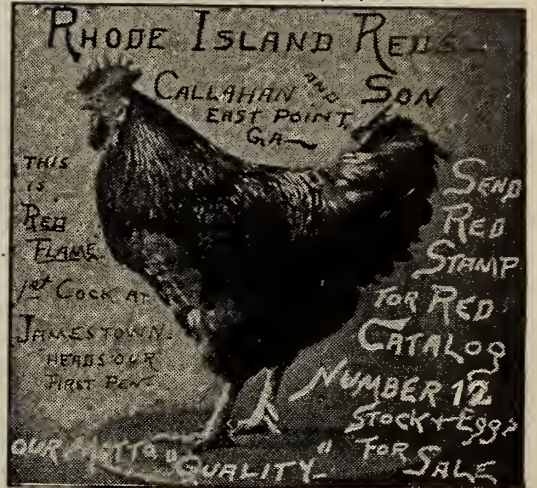 RHODE ISLAND REDS
CALLAHAN AND SON
EAST POINT,
GA
THIS
IS
RED
FLAME
1st COCK AT
JAMESTOWN.
HEADS OUR
FIRST PEN
SEND
RED
STAMP
FOR RED
CATALOG
NUMBER 12
STOCK + Eggs
FOR
SALE
OUR MOTTO "QUALITY"